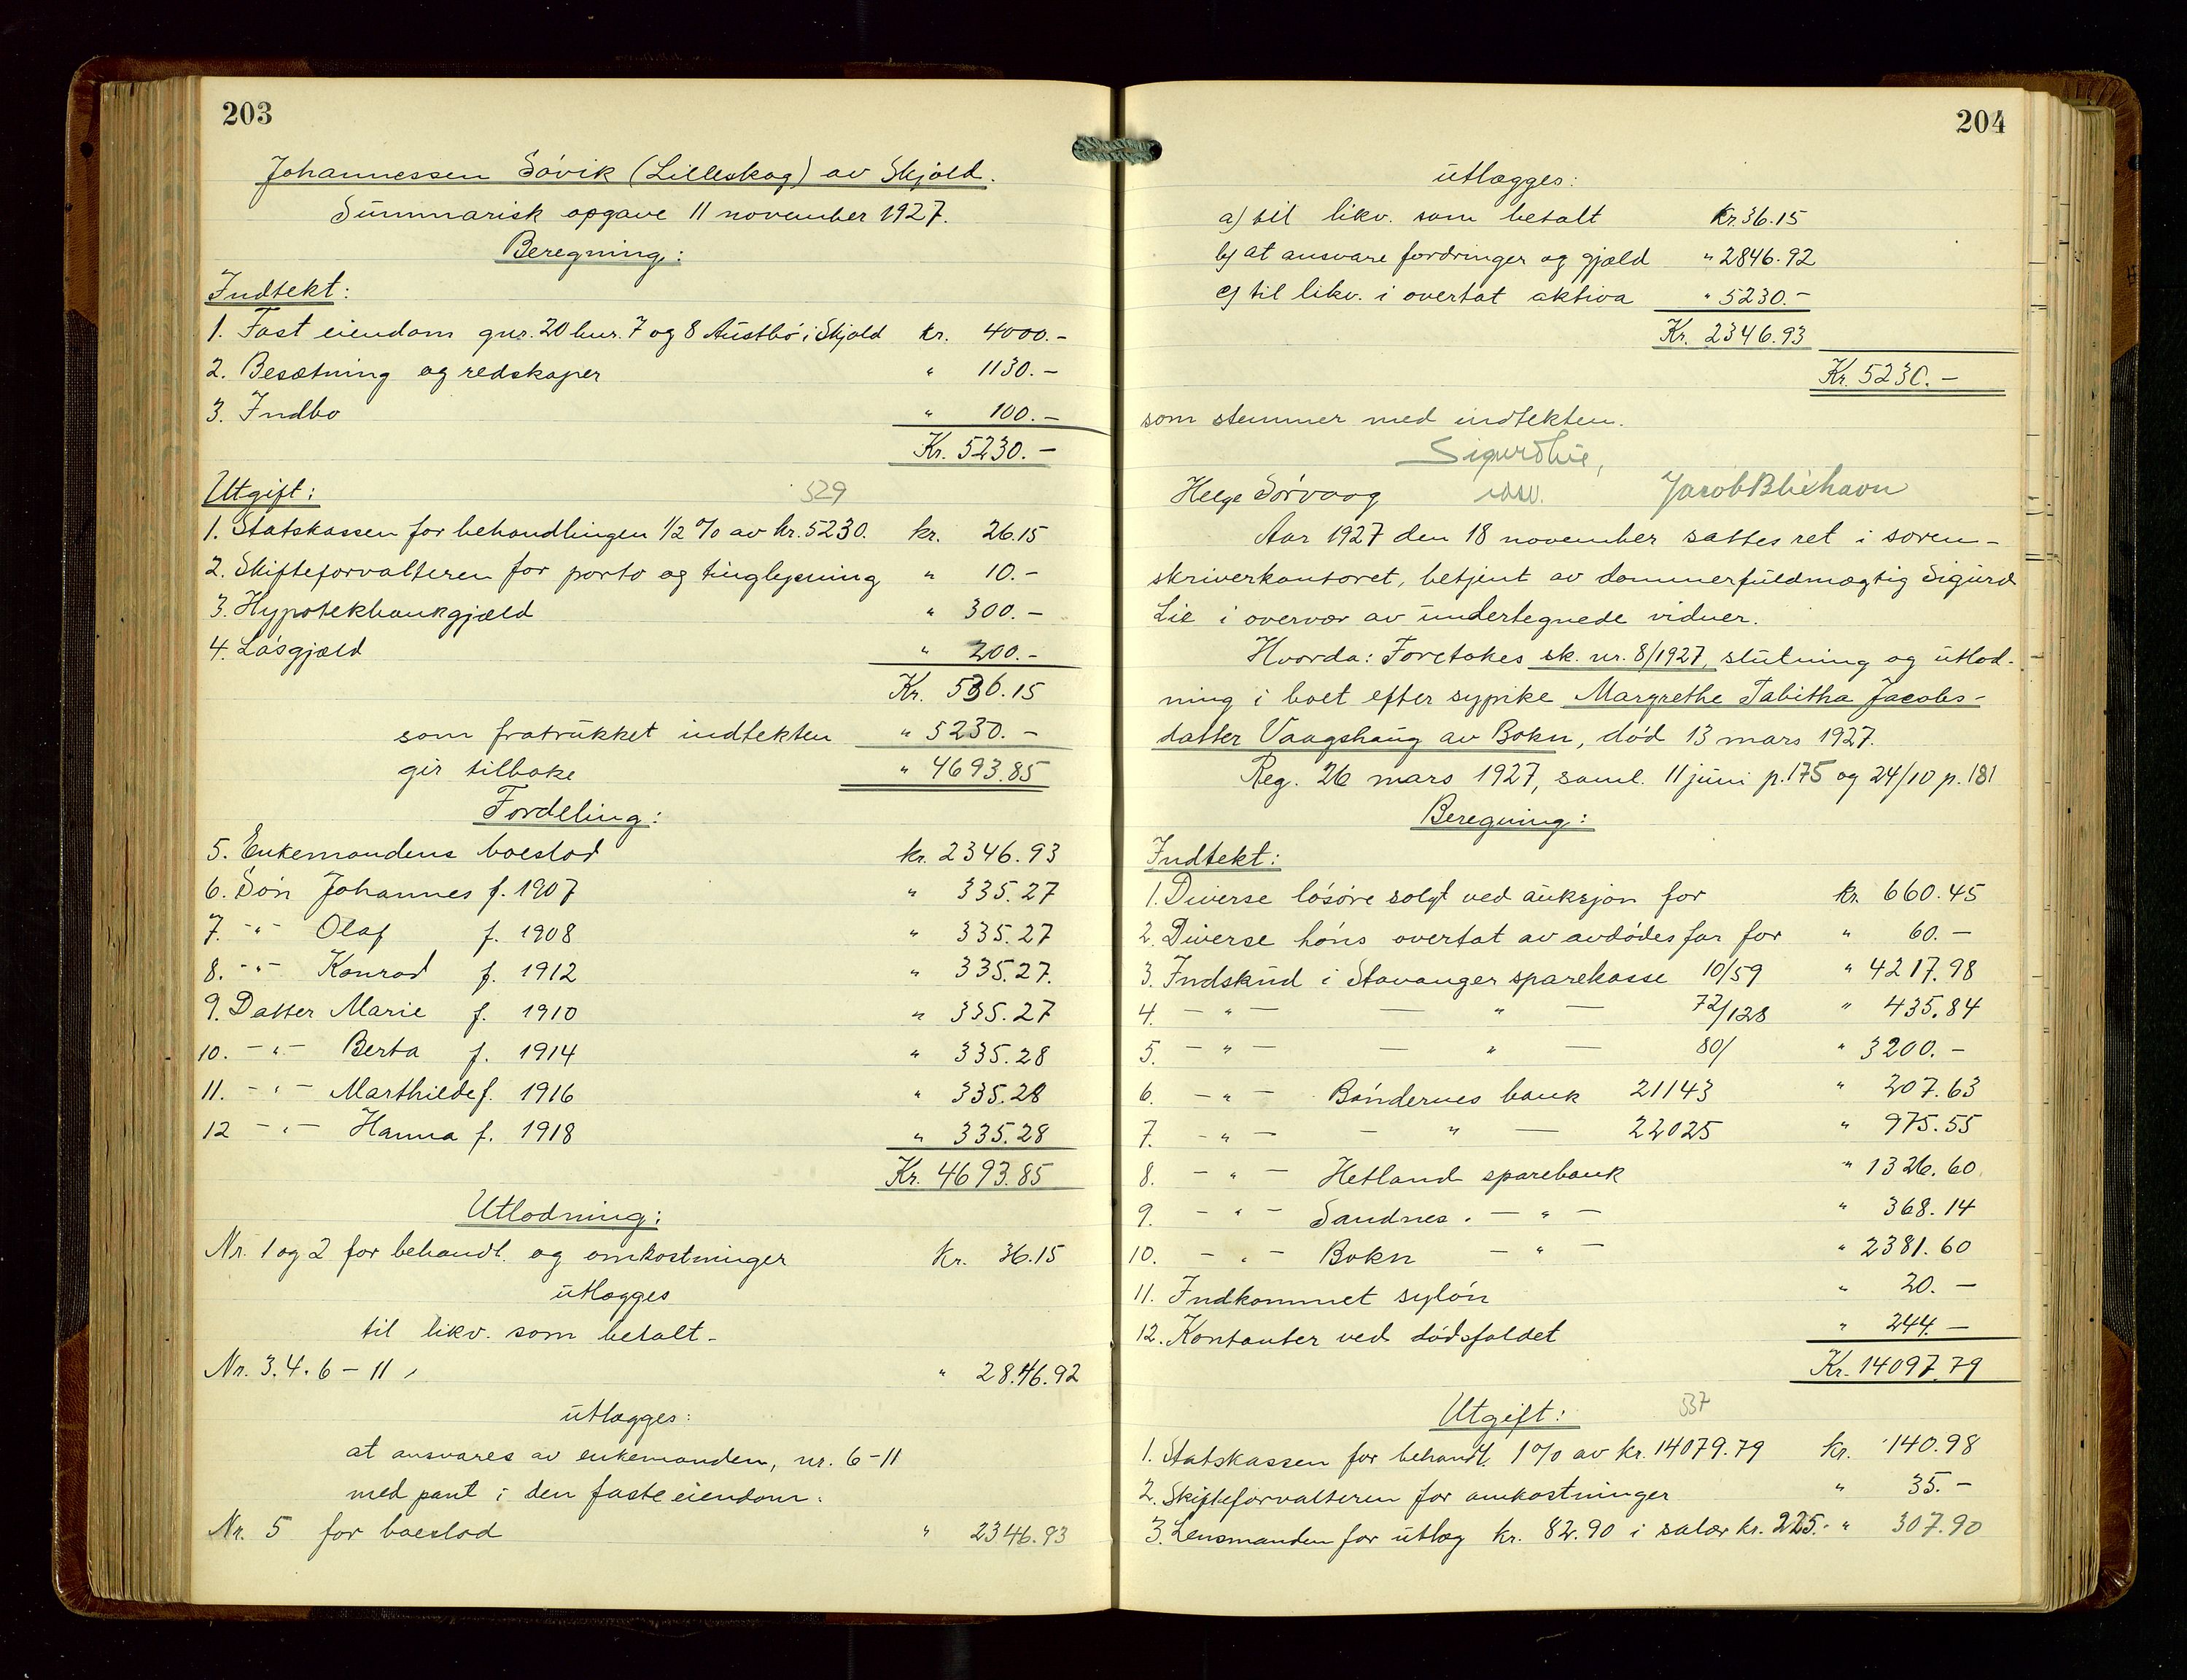 203
Johannessen Søvik (Lilleskog) av Skjold.
Summarisk opgave 11 november 1927.
Beregning:
Indtekt:
1. Fast eiendom gnr. 20 bnr. 7 og 8 Austbø i Skjold kr. 4000.-
2. Besætning og redskaper " 1130.-
3. Indbo " 100.-
Kr. 5230.-
Utgift: 529
1. Statskassen for behandlingen 1/2 % av kr. 5230. kr. 26.15
2. Skifteforvalteren for porto og tinglysning " 10.-
3. Hypotekbankgjæld " 300.-
4. Løsgjæld " 200.-
Kr. 536.15
som fratrukket indtekten " 5230.-
gir tilbake " 4693.85
Fordeling:
5. Enkemandens boeslod kr. 2346.93
6. Søn Johannes f. 1907 " 335.27
7. -"- Olaf f. 1908 " 335.27
8. -"- Konrad f. 1912 " 335.27.
9. Datter Marie f. 1910 " 335.27
10. -"- Berta f. 1914 " 335.28
11. -"- Marthilde f. 1916 " 335.28
12 -"- Hanna f. 1918 " 335.28
Kr. 4693.85
Utlodning:
Nr. 1 og 2 for behandl. og omkostninger Kr. 36.15
utlægges
til likv. som betalt-
Nr. 3.4.6-11, " 2846.92
utlægges:
at ansvares av enkemanden, nr. 6-11
med pant i den faste eiendom.
Nr. 5 for boeslod " 2346.93
204
utlægges:
a) til likv. som betalt Kr. 36.15
b) at ansvare fordringer og gjæld " 2846.92
c) til likv. i overtat aktiva " 5230.-
Kr. 2346.93
Kr. 5230.-
som stemmer med indtekten.
Sigurd Lie,
Helge Sørvaag Jacob Blichavn
Aar 1927 den 18 november sattes ret i soren-
skriverkontoret, betjent av dommerfuldmægtig Sigurd
Lie i overvær av undertegnede vidner.
Hvorda: Foretokes sk. nr. 8/1927, slutning og utlod-
ning i boet efter sypike Margrethe Tabitha Jacobs-
datter Vaagshaug av Bokn, død 13 mars 1927.
Reg. 26 mars 1927, saml. 11 juni p. 175 og 24/10 p. 181
Beregning:
Indtekt:
1. Diverse løsøre solgt ved auksjon for kr. 660.45
2. Diverse høns overtat av avdødes far for " 60.-
3. Indskud i Stavanger sparekasse 10/59 " 4217.98
4. -"- - " - 72/128 " 435.84
5. -"- - " - 80/ " 3200.-
6. -"- Bøndernes bank 21143 " 207.63
7. -"- - " - 22025 " 975.55
8. -"- Hetland sparebank " 1326.60
9. -"- Sandnes. -"- " 368.14
10. -"- Bokn -"- " 2381.60
11. Indkommet syløn " 20.-
12. Kontanter ved dødsfaldet " 244.-
Kr. 14097.79
Utgift: 537
1. Statskassen for behandl. 1% av kr. 14079.79 kr. 140.98
2. Skifteforvalteren for omkostninger " 35.-
3. Lensmanden for utlæg kr. 82.90 i salær kr. 225.- " 307.90